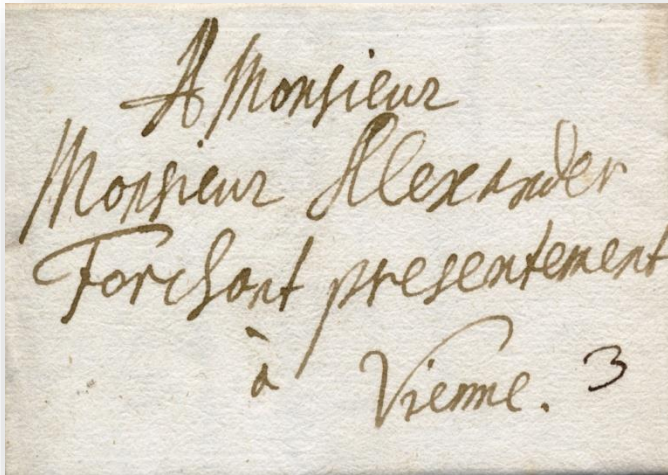 A Monsieur
Monsieur Alexander
Forchont presentement
à Vienne. 3